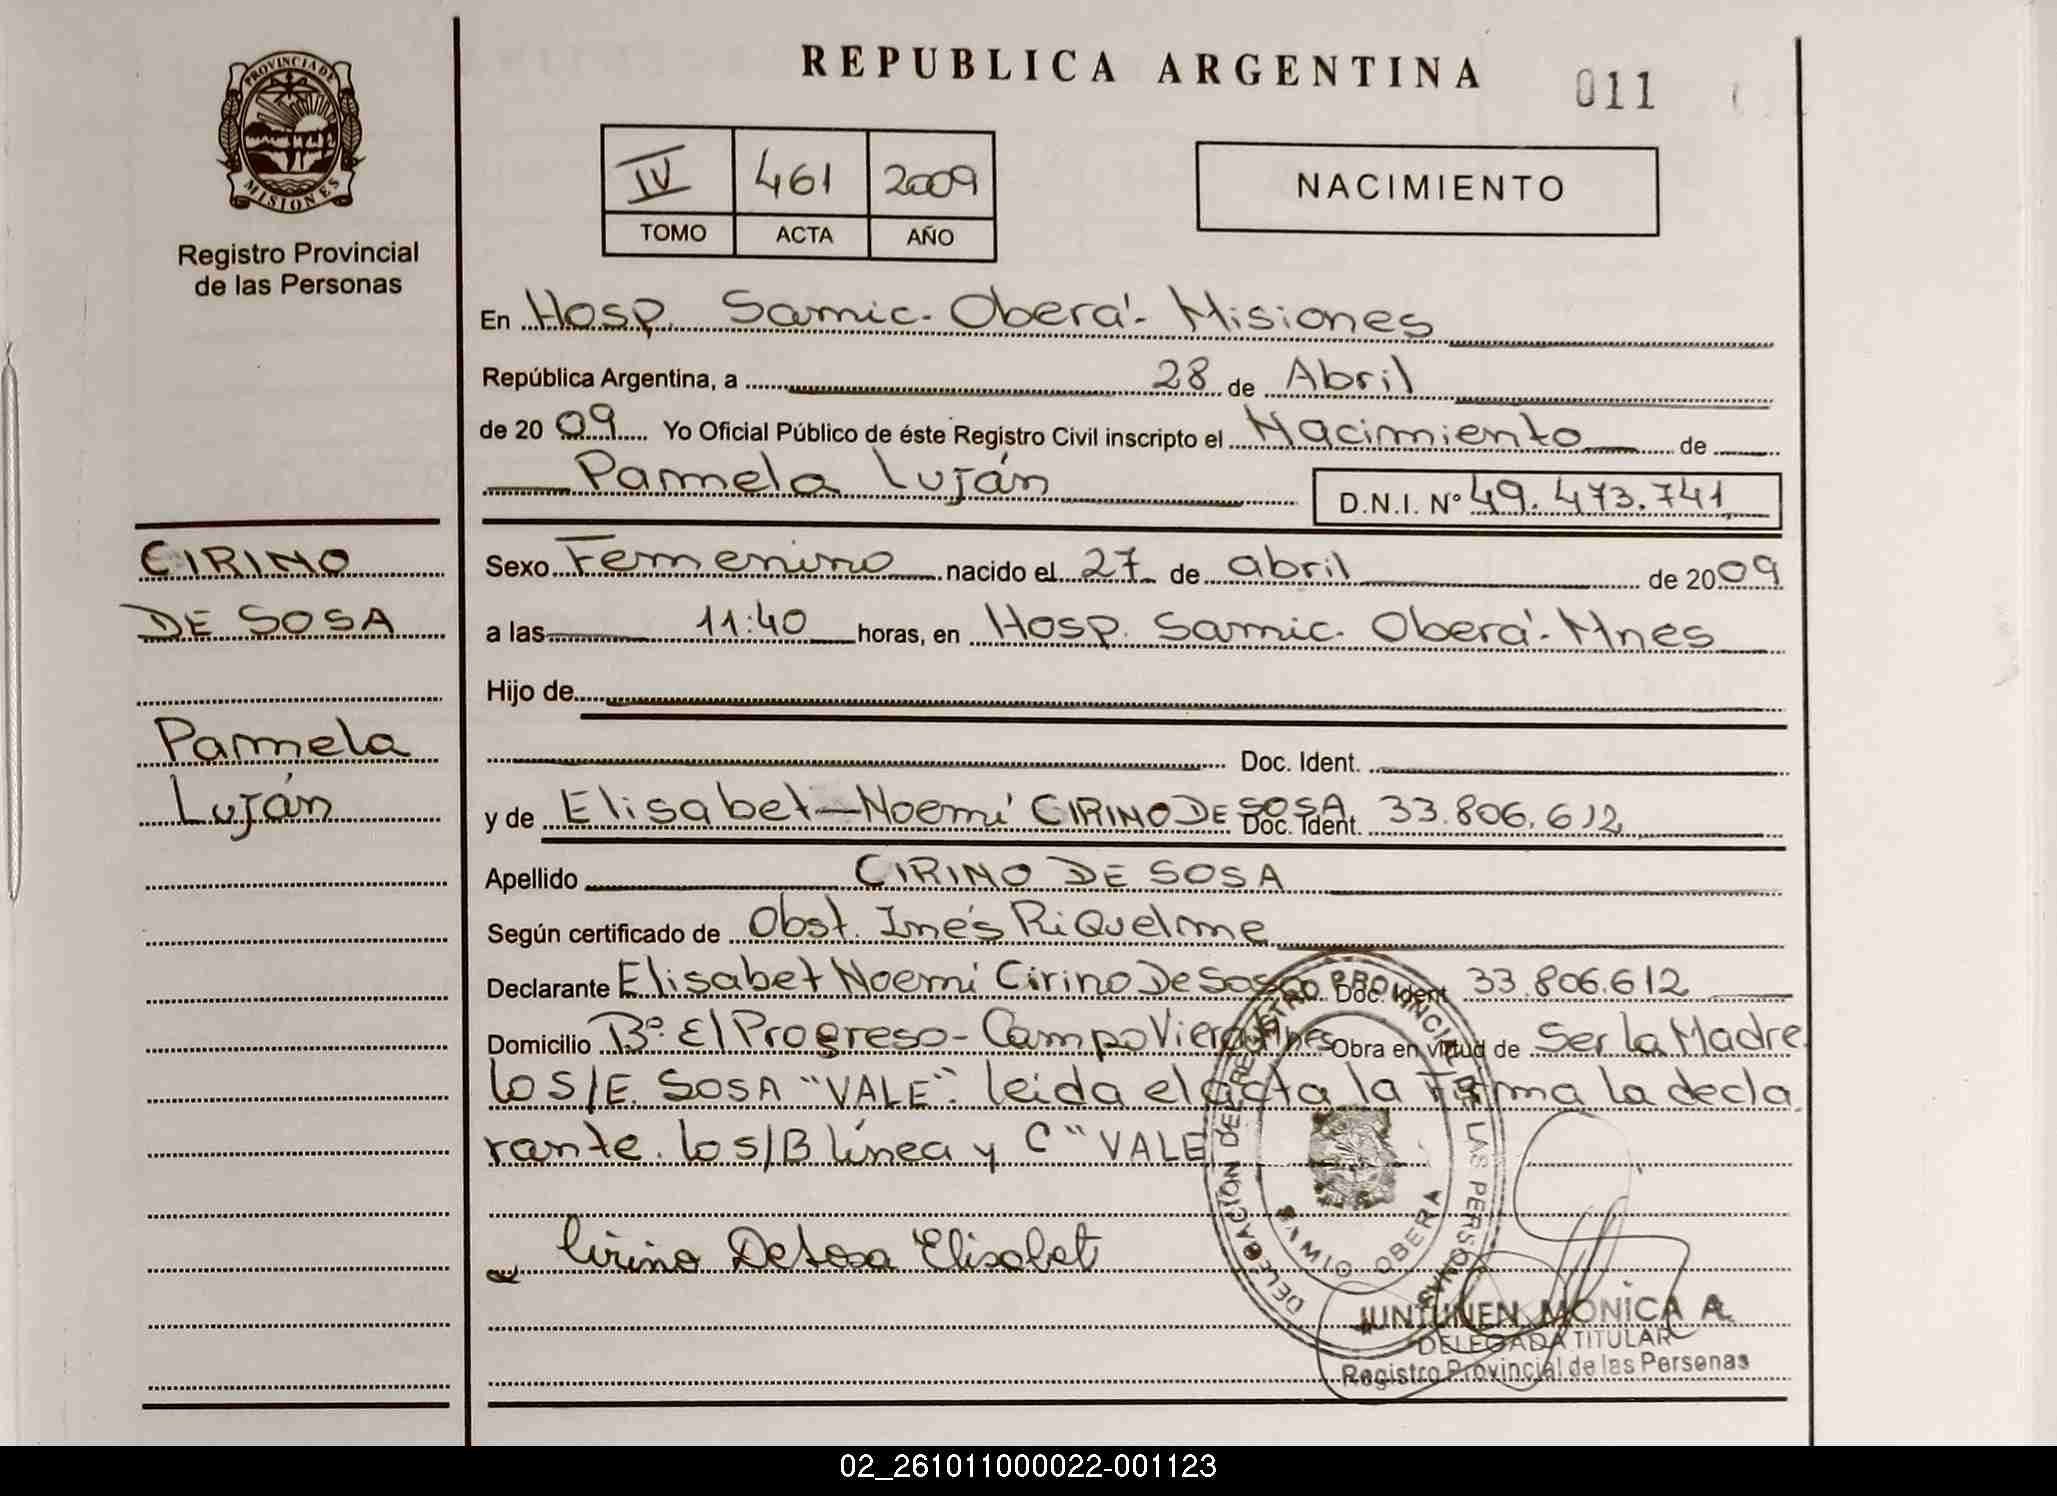 PROVINCIA DE
MISIONES
Registro Provincial
de las Personas
REPUBLICA ARGENTINA
011
IV 461 2009
TOMO ACTA AÑO
NACIMIENTO
En Hosp. Samic. Oberá - Misiones
República Argentina, a 28 de Abril
de 2009 Yo Oficial Público de éste Registro Civil inscripto el Nacimiento de
Pamela Luján D.N.I. Nº 49.473.741
CIRINO
DE SOSA
Pamela
Luján
Sexo Femenino nacido el 27 de abril de 2009
a las 11:40 horas, en Hosp. Samic. Oberá - Mnes
Hijo de
Doc. Ident.
y de Elisabet Noemí CIRINO DE SOSA Doc. Ident. 33.806.612
Apellido CIRINO DE SOSA
Según certificado de Obst. Inés Riquelme
Declarante Elisabet Noemí Cirino De Sosa Doc. Ident 33.806.612
Domicilio Bº El Progreso - Campo Viera Mnes Obra en virtud de Ser la Madre.
lo S/E. SOSA "VALE". leida el acta la firma la decla
rante. lo s/B línea y C "VALE
Cirino De Sosa Elisabet
DELEGACION DEL REGISTRO PROVINCIAL DE LAS PERSONAS
SAMIC OBERA
JUNTUNEN MONICA A.
DELEGADA TITULAR
Registro Provincial de las Personas
02_261011000022-001123